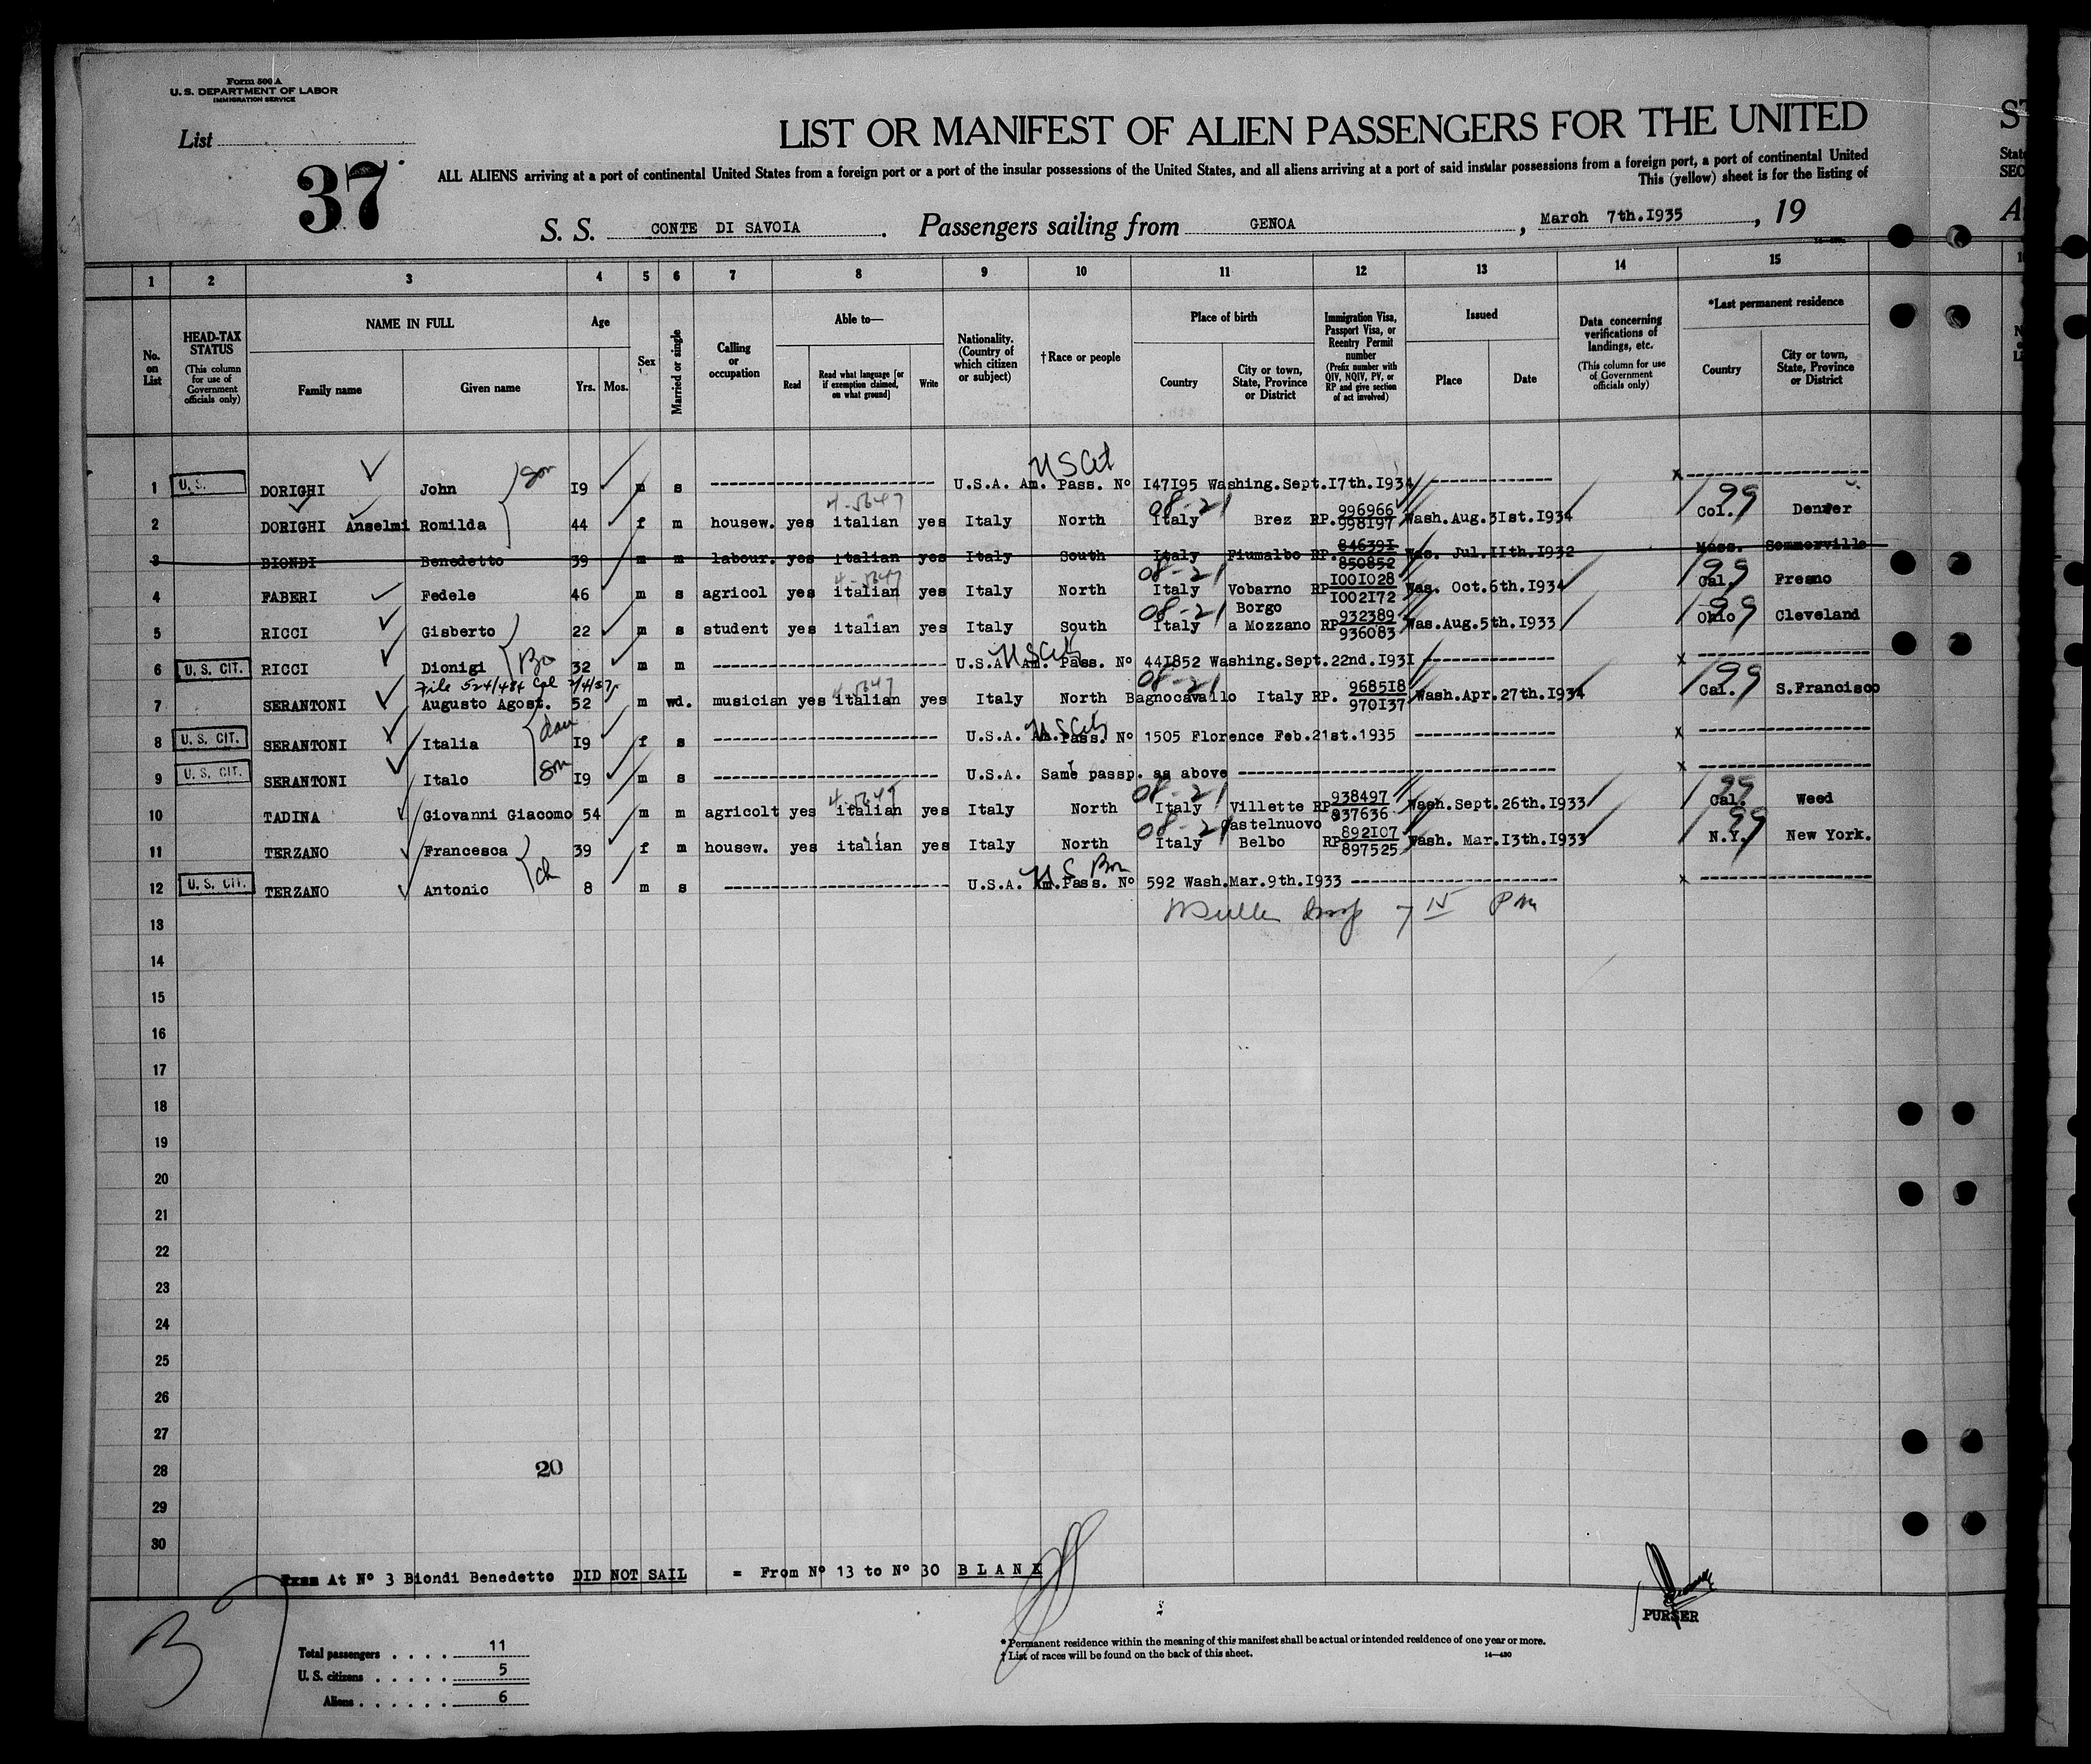 Form 500 A
U. S. DEPARTMENT OF LABOR
IMMIGRATION SERVICE
List
37
LIST OR MANIFEST OF ALIEN PASSENGERS FOR THE UNITED
ST
ALL ALIENS arriving at a port of continental United States from a foreign port or a port of the insular possessions of the United States, and all aliens arriving at a port of said insular possessions from a foreign port, a port of continental United
State
This (yellow) sheet is for the listing of
SEC
S. S. CONTE DI SAVOIA . Passengers sailing from GENOA , March 7th.I935 , 19
1 2 3 4 5 6 7 8 9 10 11 12 13 14 15
No. on List
HEAD-TAX STATUS (This column for use of Government officials only)
NAME IN FULL
Family name
Given name
Age
Yrs.
Mos.
Sex
Married or single
Calling or occupation
Able to—
Read
Read what language [or if exemption claimed, on what ground]
Write
Nationality. (Country of which citizen or subject)
† Race or people
Place of birth
Country
City or town, State, Province or District
Immigration Visa, Passport Visa, or Reentry Permit number (Prefix number with QIV, NQIV, PV, or RP and give section of act involved)
Issued
Place
Date
Data concerning verifications of landings, etc. (This column for use of Government officials only)
*Last permanent residence
Country
City or town, State, Province or District
US Cit
1 U.S. DORIGHI John son I9 m s U.S.A. Am. Pass. Nº I47I95 Washing.Sept.I7th.I934 x
4-5647 08-21 99
2 DORIGHI Anselmi Romilda 44 f m housew. yes italian yes Italy North Italy Brez RP. 996966 998197 Wash.Aug.3Ist.I934 Col. Denver
3 BIONDI Benedetto 39 m m labour. yes italian yes Italy South Italy Fiumalbo RP. 84639I 850852 Was. Jul.IIth.I932 Mass. Sommerville
4-5647 08-21 99
4 FABERI Fedele 46 m s agricol yes italian yes Italy North Italy Vobarno RP I00I028 I002I72 Was. Oct.6th.I934 Cal. Fresno
08-21 99
5 RICCI Gisberto 22 m s student yes italian yes Italy South Italy Borgo a Mozzano RP 932389 936083 Was.Aug.5th.I933 Ohio Cleveland
US Cit
6 U. S. CIT. RICCI Dionigi Bro 32 m m U.S.A. Am. Pass. Nº 44I852 Washing.Sept.22nd.I93I x
File 524/484 Cal 4-5647 08-21 99
7 SERANTONI Augusto Agost. 52 m wd. musician yes italian yes Italy North Bagnocavallo Italy RP. 9685I8 970I37 Wash.Apr.27th.I934 Cal. S.Francisco
US Cit
8 U. S. CIT. SERANTONI Italia dau I9 f s U.S.A. Am.Pass. Nº 1505 Florence Feb.21st.1935 x
9 U. S. CIT. SERANTONI Italo son I9 m s U.S.A. Same passp. as above x
4-5647 08-21 99
10 TADINA Giovanni Giacomo 54 m m agricolt yes italian yes Italy North Italy Villette RP 938497 937636 Wash.Sept.26th.I933 Cal. Weed
08-21 99
11 TERZANO Francesca 39 f m housew. yes italian yes Italy North Italy Castelnuovo Belbo RP 892I07 897525 Wash. Mar.I3th.I933 N.Y. New York.
US Bn
12 U. S. CIT. TERZANO Antonio ch 8 m s U.S.A. Am.Pass. Nº 592 Wash.Mar.9th.I933 x
PM
13
14
15
16
17
18
19
20
21
22
23
24
25
26
27
28 20
29
30
At Nº 3 Biondi Benedetto DID NOT SAIL = From Nº 13 to Nº 30 B L A N K
PURSER
37
Total passengers . . . . 11
U. S. citizens . . . . . 5
Aliens . . . . . . 6
* Permanent residence within the meaning of this manifest shall be actual or intended residence of one year or more.
† List of races will be found on the back of this sheet.
14—430